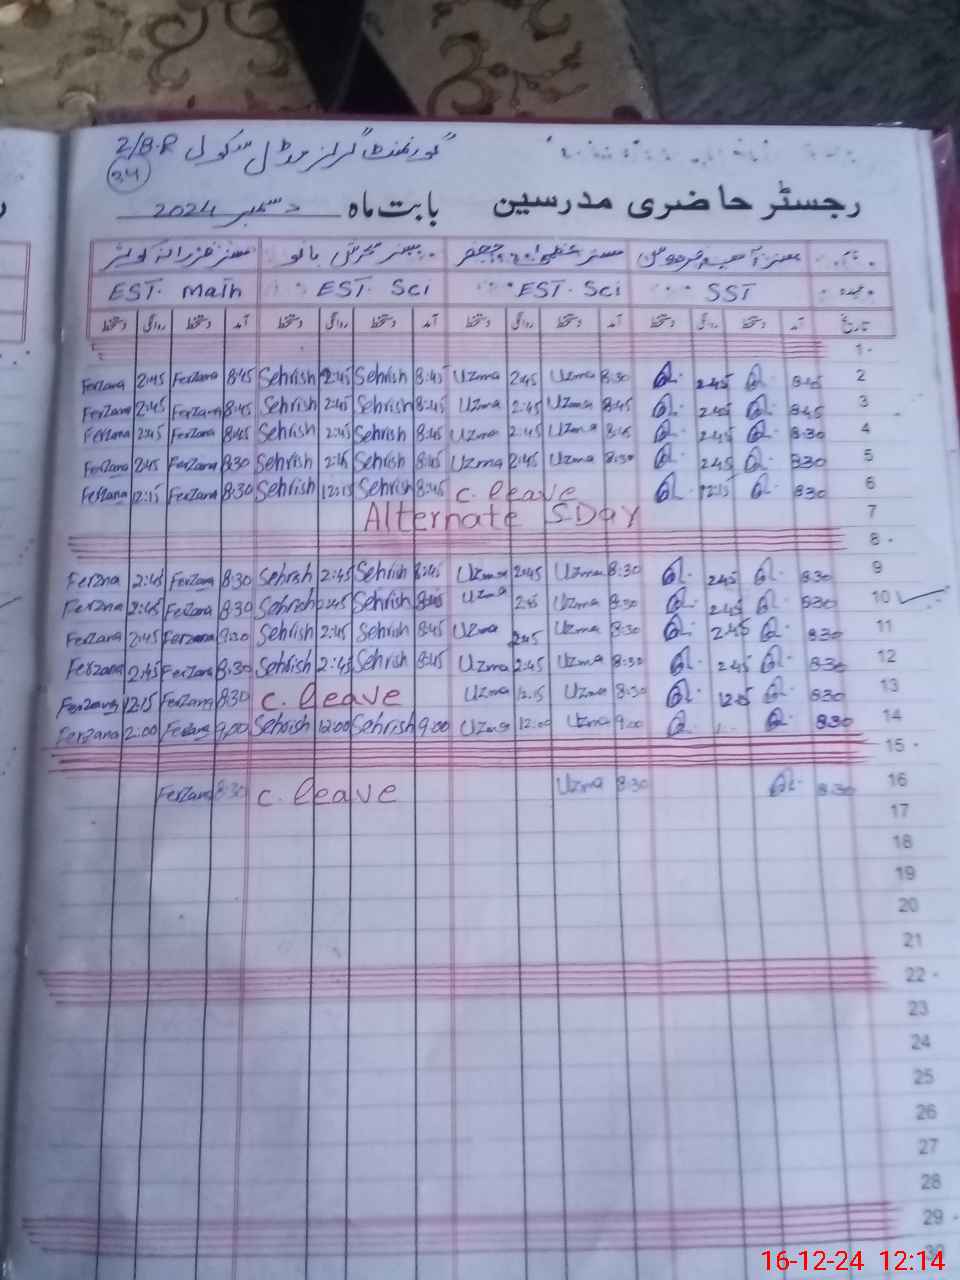 گورنمنٹ گرلز مڈل سکول 2/8-R
34
رجسٹر حاضری مدرسین بابت ماہ دسمبر 2024
نام
عہدہ SST EST. Sci EST. Sci EST. Math
تاریخ آمد دستخط روانگی دستخط آمد دستخط روانگی دستخط آمد دستخط روانگی دستخط آمد دستخط روانگی دستخط
1
Ferzana 2:45 Ferzana 8:45 Sehrish 2:45 Sehrish 8:45 Uzma 2:45 Uzma 8:30 2:45 8:45 2
Ferzana 2:45 Ferzana 8:45 Sehrish 2:45 Sehrish 8:45 Uzma 2:45 Uzma 8:45 2:45 8:45 3
Ferzana 2:45 Ferzana 8:45 Sehrish 2:45 Sehrish 8:45 Uzma 2:45 Uzma 8:45 2:45 8:30 4
Ferzana 2:45 Ferzana 8:30 Sehrish 2:45 Sehrish 8:45 Uzma 2:45 Uzma 8:30 2:45 8:30 5
Ferzana 12:15 Ferzana 8:30 Sehrish 12:15 Sehrish 8:45 C. leave 12:15 8:30 6
Alternate S.Day 7
8
Ferzna 2:45 Ferzana 8:30 Sehrish 2:45 Sehrish 8:45 Uzma 2:45 Uzma 8:30 2:45 8:30 9
Ferzna 2:45 Ferzana 8:30 Sehrish 2:45 Sehrish Uzma 2:45 Uzma 8:30 2:45 8:30 10
Ferzana 2:45 Ferzana 9:00 Sehrish 2:45 Sehrish 8:45 Uzma 2:45 Uzma 8:30 2:45 8:30 11
Ferzana 2:45 Ferzana 8:30 Sehrish 2:45 Sehrish 8:45 Uzma 2:45 Uzma 8:30 2:45 8:30 12
Ferzana 12:15 Ferzana 8:30 C. leave Uzma 12:15 Uzma 8:30 12:15 8:30 13
Ferzana 2:00 Ferzana 9:00 Sehrish 12:00 Sehrish 9:00 Uzma 12:00 Uzma 9:00 8:30 14
15
Ferzana 8:30 C. leave Uzma 8:30 8:30 16
17
18
19
20
21
22
23
24
25
26
27
28
29
30
16-12-24 12:14